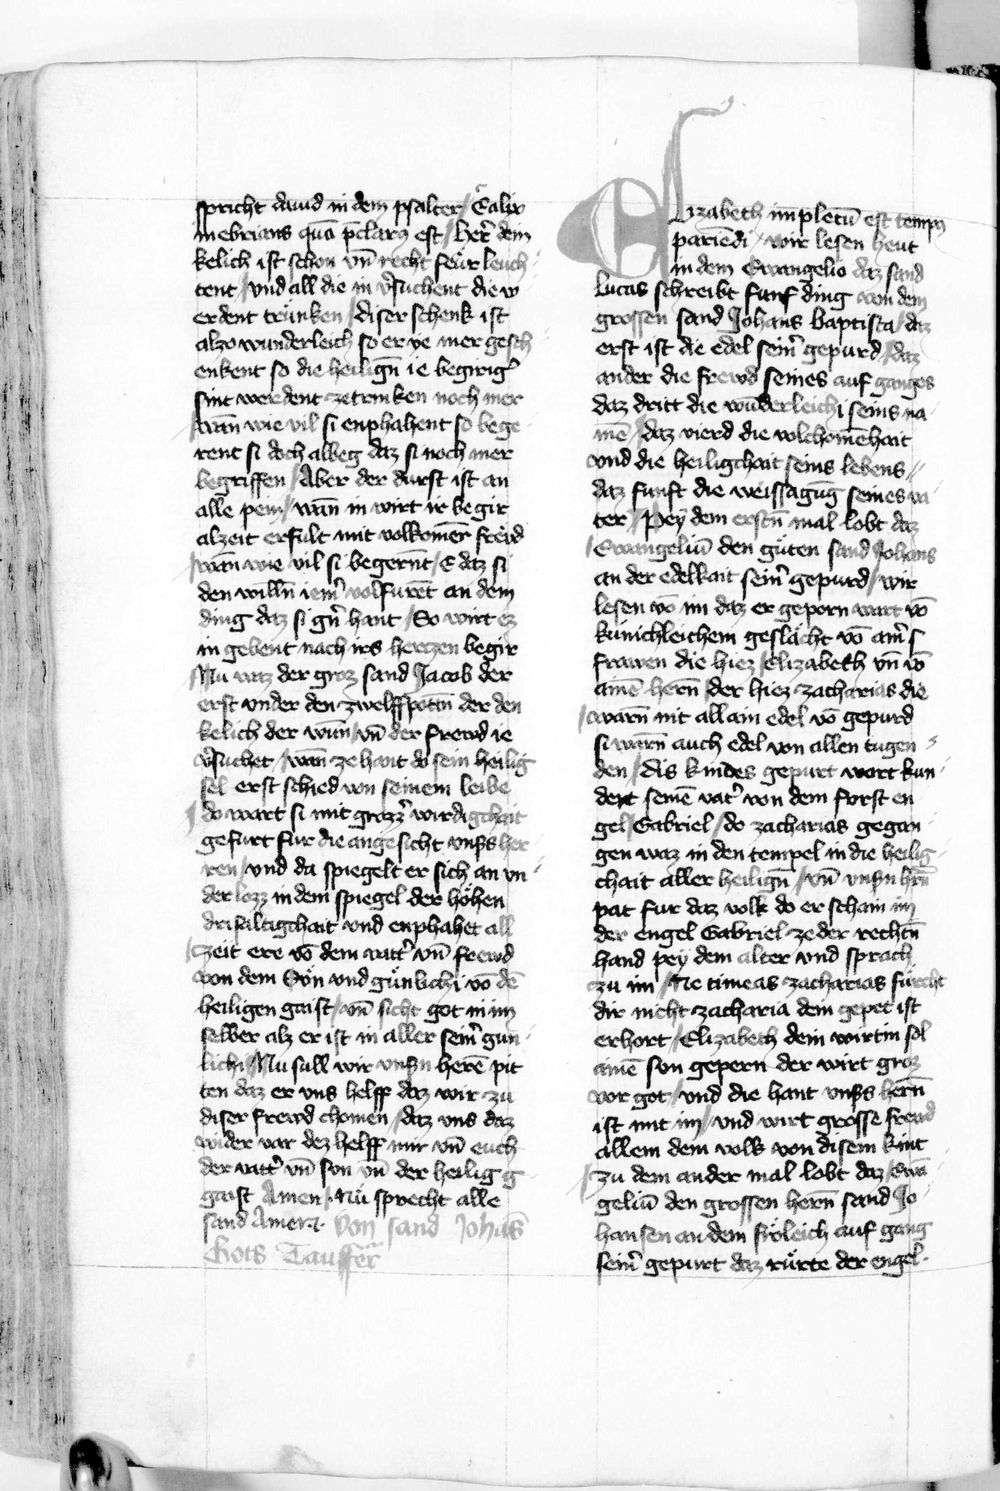 spricht dauid in dem psalter / Calix
inebrians quā p̄clarꝰ est / her̄ dem
kelich ist schon vn̄ recht feür leuch
tent / vnd all die in v̓suchent die w
erdent trünken / diser schenk ist
alzo wunderleich so er ye mer gesch
enkent so die heilign̄ ie begirig̓
sint werdent ze trinken noch mer
/ wān wie vil si enphahent so bege
rent si doch albeg daz si noch mer
begriffen / Aber der durst ist an
alle pein / wān in wirt ir begir
alzeit erfült mit volkomēr frewd
/ wān wie vil si begern̄t / E daz si
den willn̄ iem̓ volfurēt an dem
ding daz si gern̄ hant / So wirt ez
in gebent nach irs hertzen begir
/ Nu waz der groz sand Jacob der
erst vnder den zwelffpotn̄ der den
kelich der wūn / vn̄ der frewd ie
v̓suchet / wān ze hant do sein heilig
sel erst schied von seinem leibe
/ do wart si mit grozz̓ wirdigchait
gefurt für die angesicht vnſs her
ren / vnd da spiegelt er sich an vn
der lozz in dem spiegel der höhen
drifaltigchait vnd enphahet all
/ zeit ere vō dem vatt̓ vn̄ frewd
von dem Sün vnd günlichi vō dē
heiligen gaist / vn̄ sicht got in im
selber alz er ist in aller sein̓ gün
lichi / Nu sull wir vnſn herē pit
ten daz er vns helff daz wir zu
diser frewd chomen / daz vns daz
wider var dez helff mir vn̄ euch
der vatt̓ vn̄ sun vn̄ der heilig g
gaist Amen · Nü sprecht alle
sand Amen · Von sand Johās
Gots Tauffer̄
Elizabeth impletū est tempꝰ
pariēdi / wir lesen heut
in dem Ewangelio daz sand
Lucas schreibt funf ding von dem
grossen sand Johans baptista / daz
erst ist die edel sein̓ gepurd / daz
ander die frewd seines auf ganges
daz dritt die wūderleichi seins na
mē / daz vierd die volchomēhait
vnd die heiligchait seins lebens //
daz funft die weissagūg seines va
ter / Pey dem erstn̄ mal lobt daz
/ Ewangeliū den güten sand Johans
an der edelkait sein̓ gepurd / wir
lesen vō im daz er geporn wart vō
künichleichem geslächt vō ain̓ s
frawen die hiez / Elizabeth vn̄ vō
ainē hern̄ der hiez zacharias die
/ warn̄ nit allain edel vō gepurd
si warn̄ auch edel von allen tugen
den / dis kindes gepurt wart kun
dert seinē vat̓ von dem furst en
gel / Gabriel / do zacharias gegan
gen waz in den tempel in die heilig
chait aller heilign̄ / vn̄ vnſn hrn̄
pat für daz volk do erschain im
der engel Gabriel ze der rechtn̄
hand pey dem alter vnd sprach
zu im / Ne timeas zacharias fürcht
dir nicht zacharia dein gepet ist
erhort / Elizabeth dein wirtin sol
ainē sun gepern der wirt groz
vor got / vnd die hant vnſs hern̄
ist mit im / vnd wirt grosse frewd
allem dem volk von disem kint
/ zu dem ander mal lobt daz Ewā
geliū den grossen hern̄ sand Jo
hansen an dem fröleich auf gang
sein̓ gepurt daz rürte der engel ·